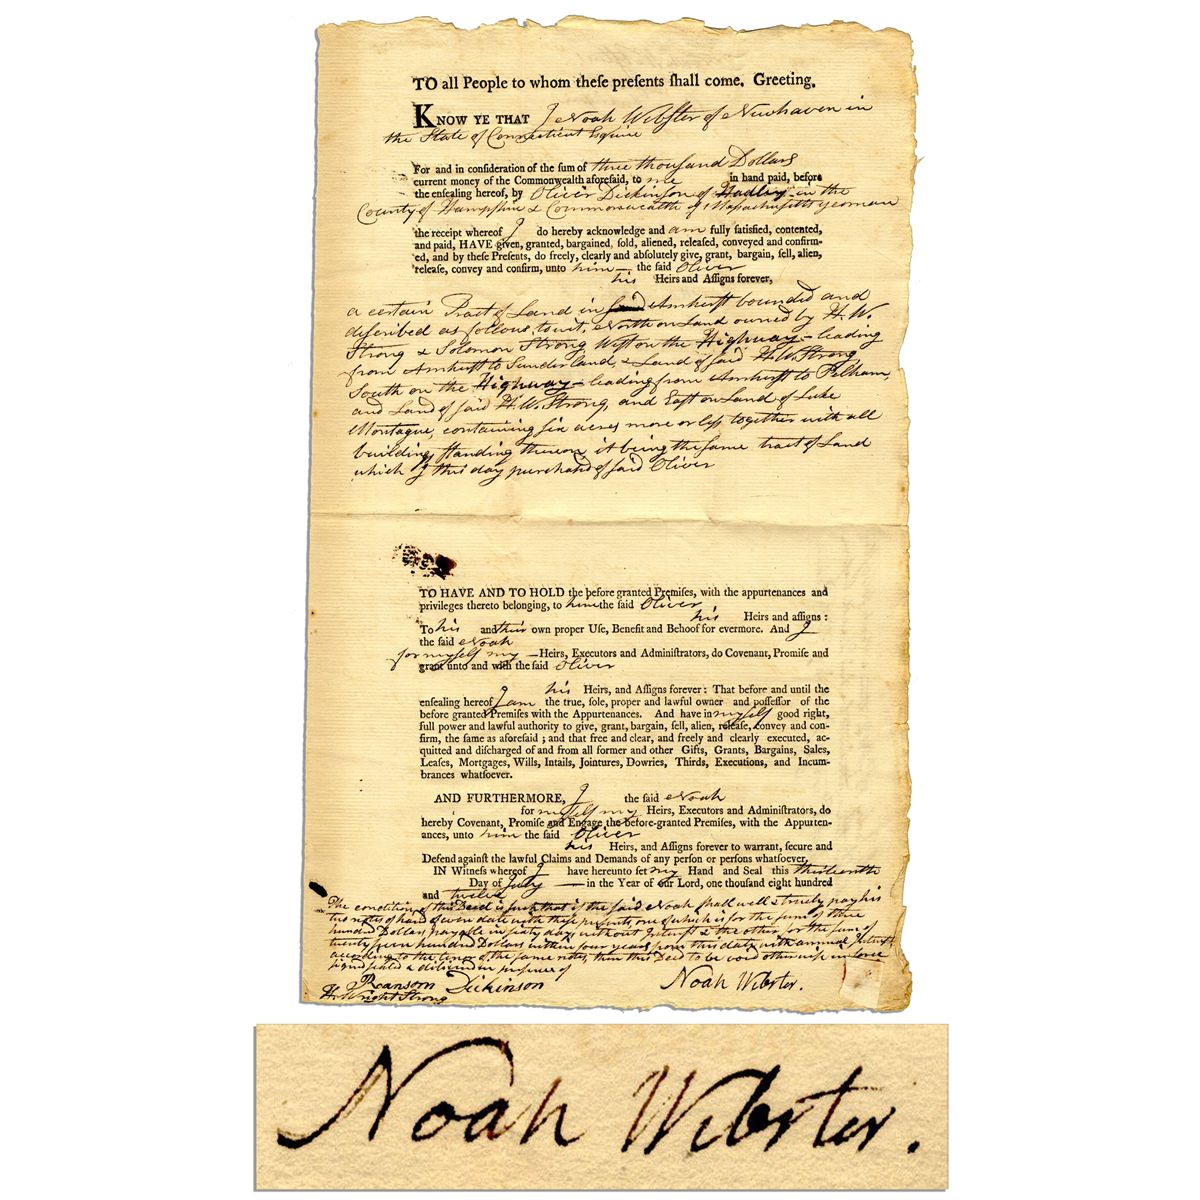 TO all People to whom theſe preſents ſhall come. Greeting.
KNOW YE THAT I Noah Webster of Newhaven in
the State of Connecticut Esquire
For and in conſideration of the ſum of three thousand Dollars
current money of the Commonwealth aforeſaid, to me in hand paid, before
the enſealing hereof, by Oliver Dickinson of Hadley in the
County of Hampshire & Commonwealth of Massachusetts yeoman
the receipt whereof I do hereby acknowledge and am fully ſatisfied, contented,
and paid, HAVE given, granted, bargained, ſold, aliened, releaſed, conveyed and confirm-
ed, and by theſe Preſents, do freely, clearly and abſolutely give, grant, bargain, ſell, alien,
releaſe, convey and confirm, unto him — the ſaid Oliver
his Heirs and Aſſigns forever,
a certain Tract of Land in said Amherst bounded and
discribed as follows, towit, North on Land owned by H. W.
Strong & Solomon Strong West on the Highway — leading
from Amherst to Sunderland, & Land of said H. W. Strong
South on the Highway — leading from Amherst to Pelham,
and Land of said H. W. Strong, and East on Land of Luke
Montague, containing six acres more or less together with all
buildings standing thereon it being the same tract of Land
which I this day purchased of said Oliver
TO HAVE AND TO HOLD the before granted Premiſes, with the appurtenances and
privileges thereto belonging, to him the ſaid Oliver
his Heirs and aſſigns :
To his and their own proper Uſe, Benefit and Behoof for evermore. And I
the ſaid Noah
for myself my — Heirs, Executors and Adminiſtrators, do Covenant, Promiſe and
grant unto and with the ſaid Oliver
his Heirs, and Aſſigns forever : That before and until the
enſealing hereof I am the true, ſole, proper and lawful owner and poſſeſſor of the
before granted Premiſes with the Appurtenances. And have in myself good right,
full power and lawful authority to give, grant, bargain, ſell, alien, releaſe, convey and con-
firm, the ſame as aforeſaid ; and that free and clear, and freely and clearly executed, ac-
quitted and diſcharged of and from all former and other Gifts, Grants, Bargains, Sales,
Leaſes, Mortgages, Wills, Intails, Jointures, Dowries, Thirds, Executions, and Incum-
brances whatſoever.
AND FURTHERMORE, I the ſaid Noah
for myself my Heirs, Executors and Adminiſtrators, do
hereby Covenant, Promiſe and Engage the before-granted Premiſes, with the Appurten-
ances, unto him the ſaid Oliver
his Heirs, and Aſſigns forever to warrant, ſecure and
Defend againſt the lawful Claims and Demands of any perſon or perſons whatſoever.
IN Witneſs whereof I have hereunto ſet my Hand and Seal this thirteenth
Day of July — in the Year of our Lord, one thouſand eight hundred
and twelve
The condition of this Deed is such that if the said Noah shall well & truely pay his
two notes of hand of even date with these presents, one of which is for the sum of three
hundred Dollars, payable in sixty days without Interest & the other for the sum of
twenty seven hundred Dollars within four years from this date with annual Interest
according to the tenor of the same notes, then this Deed to be void otherwise in force
signd sealed & deliverd in presence of
Ransom Dickinson
Noah Webster.
H. Wright Strong
Noah Webster.